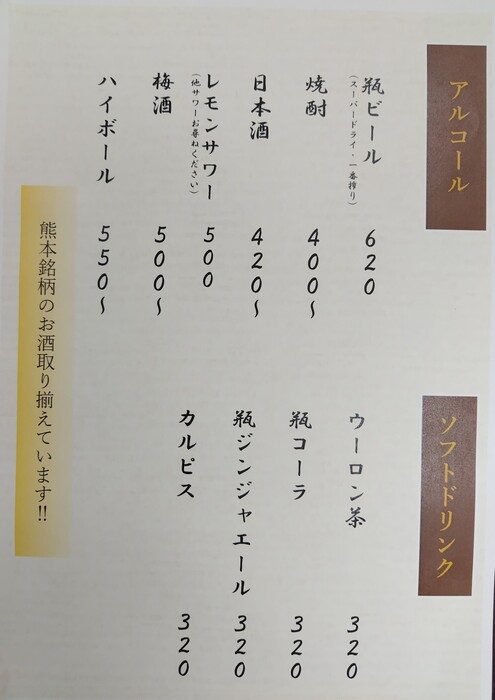 アルコール
瓶ビール 620
(スーパードライ・一番搾り)
焼酎 400~
日本酒 420~
レモンサワー 500
(他サワーお尋ねください)
梅酒 500~
ハイボール 550~
ソフトドリンク
ウーロン茶 320
瓶コーラ 320
瓶ジンジャエール 320
カルピス 320
熊本銘柄のお酒取り揃えています!!